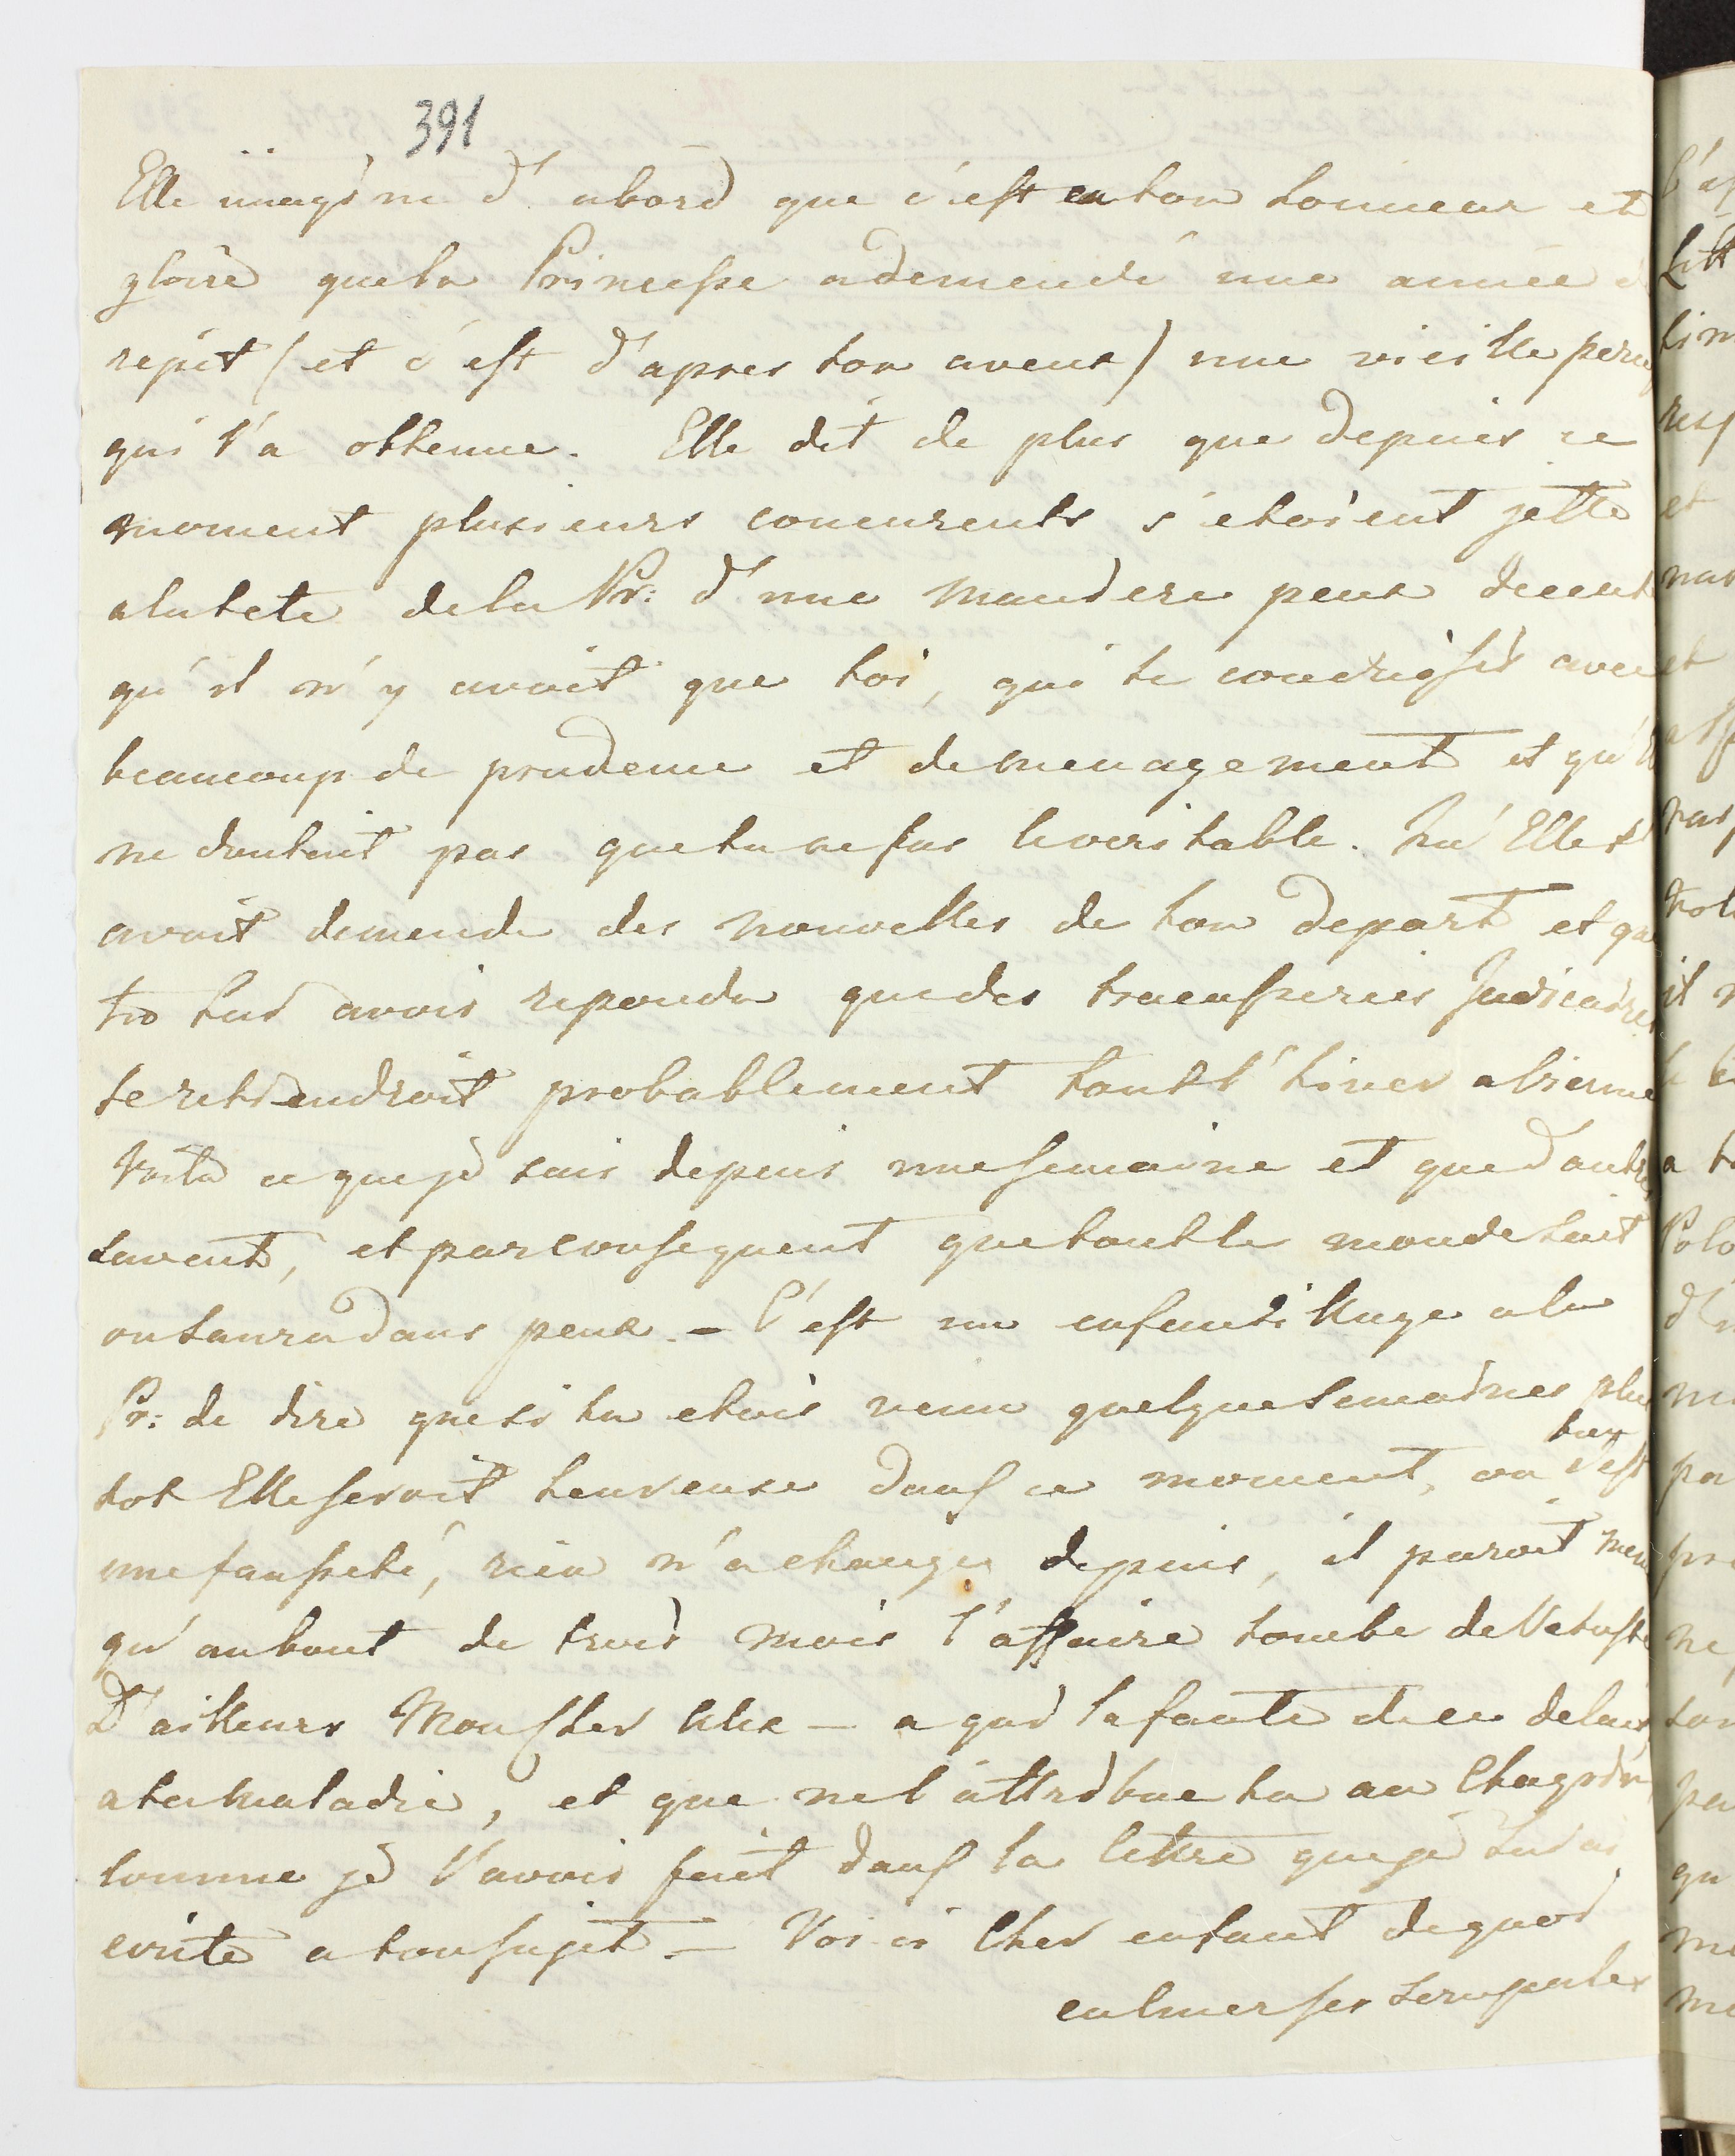 391
Elle imagine d'abord que c'est en ton honneur et
gloire que la Princesse a demendé une année d
repit (et c'est d'apres ton aveux) une vieille peru
qui l'a obtenue. Elle dit de plus que depuis ce
moment plusieurs concurents s'etoient jette
a la tete de la Pr: d'une maniere peux decente
qu'il n'y avoit que toi, qui te conduisis avec
beaucoup de prudence et de menagement et qu'
ne doutoit pas que tu ne fus le veritable. Qu'Elle t'
avoit demende des nouvelles de ton depart et que
tu lui avois repondu que des tracasseries Judicaires
te retiendroit probablement tout l'hiver a Vienne
Voila ce que je sais depuis une semaine et que d'autres
savent, et par consequent que tout le monde sait
ou saura dans peux. – C'est un enfantillage a la
Pr: de dire que si tu etois venu quelque semaines plus
tot Elle seroit heureuse dans ce moment, ou bien c'est
une fausseté, rien n'a changer depuis, il paroit meme
qu'au bout de trois mois l'affaire tombe de Vetuste
D'ailleurs Monsieur – a qui la faute de ce delais,
a ta maladie, et que ne l'attribue tu au Chagrin,
comme je l'avois fait dans la lettre que je lui ai
ecrite a ton sujet. – Voici Cher enfant de quoi
calmer ses scrupules